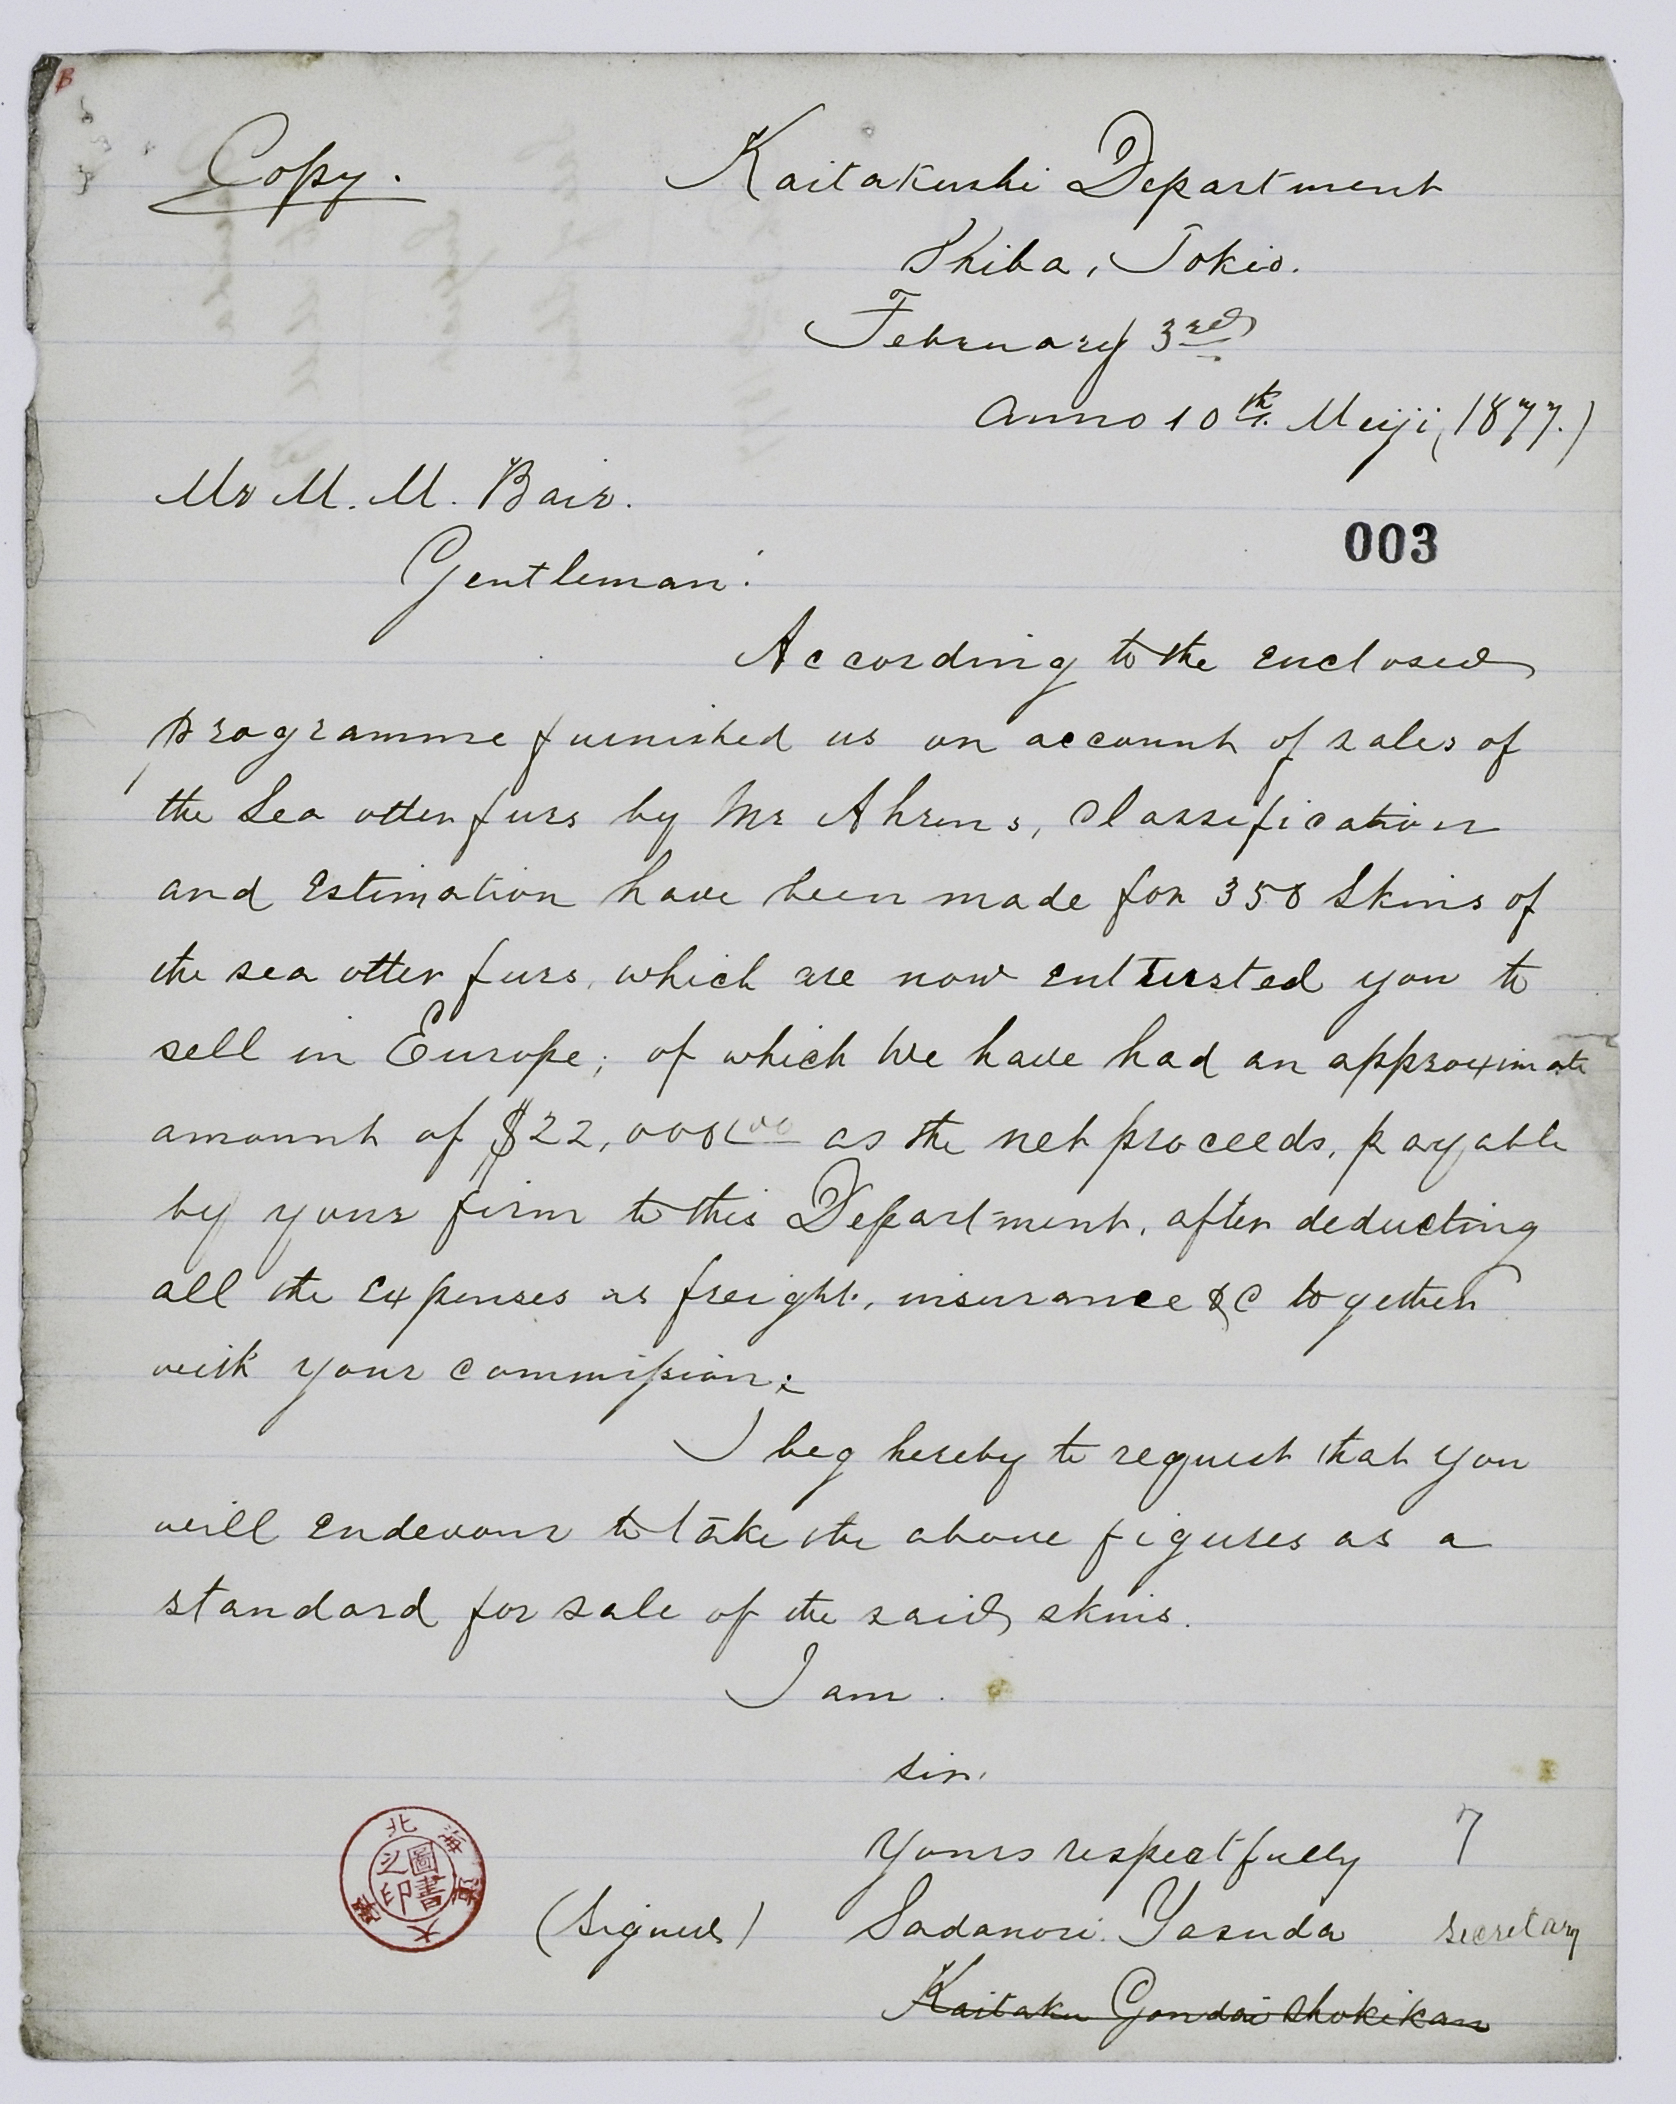 B
Copy.
Kaitakushi Department
Shiba, Tokio.
February 3rd
Anno 10th. Meiji, (1877.)
Mr M. M. Bair.
003
Gentleman:
According to the enclosed
programme furnished us on account of sales of
the Sea otter furs by Mr Ahrens, Classification
and Estimation have been made for 358 Skins of
the sea otter furs, which are now entrusted you to
sell in Europe; of which We have had an approximate
amount of $22,000.00 as the net proceeds, payable
by your firm to this Department, after deducting
all the expenses as freight, insurance &C together
with your commission.
I beg hereby to request that you
will endevour to take the above figures as a
standard for sale of the said skins.
I am.
sir,
Yours respectfully 7
(Signed) Sadanori Yasuda secretary
Kaitaku Gondai Shokikan
北海道大學
圖書之印